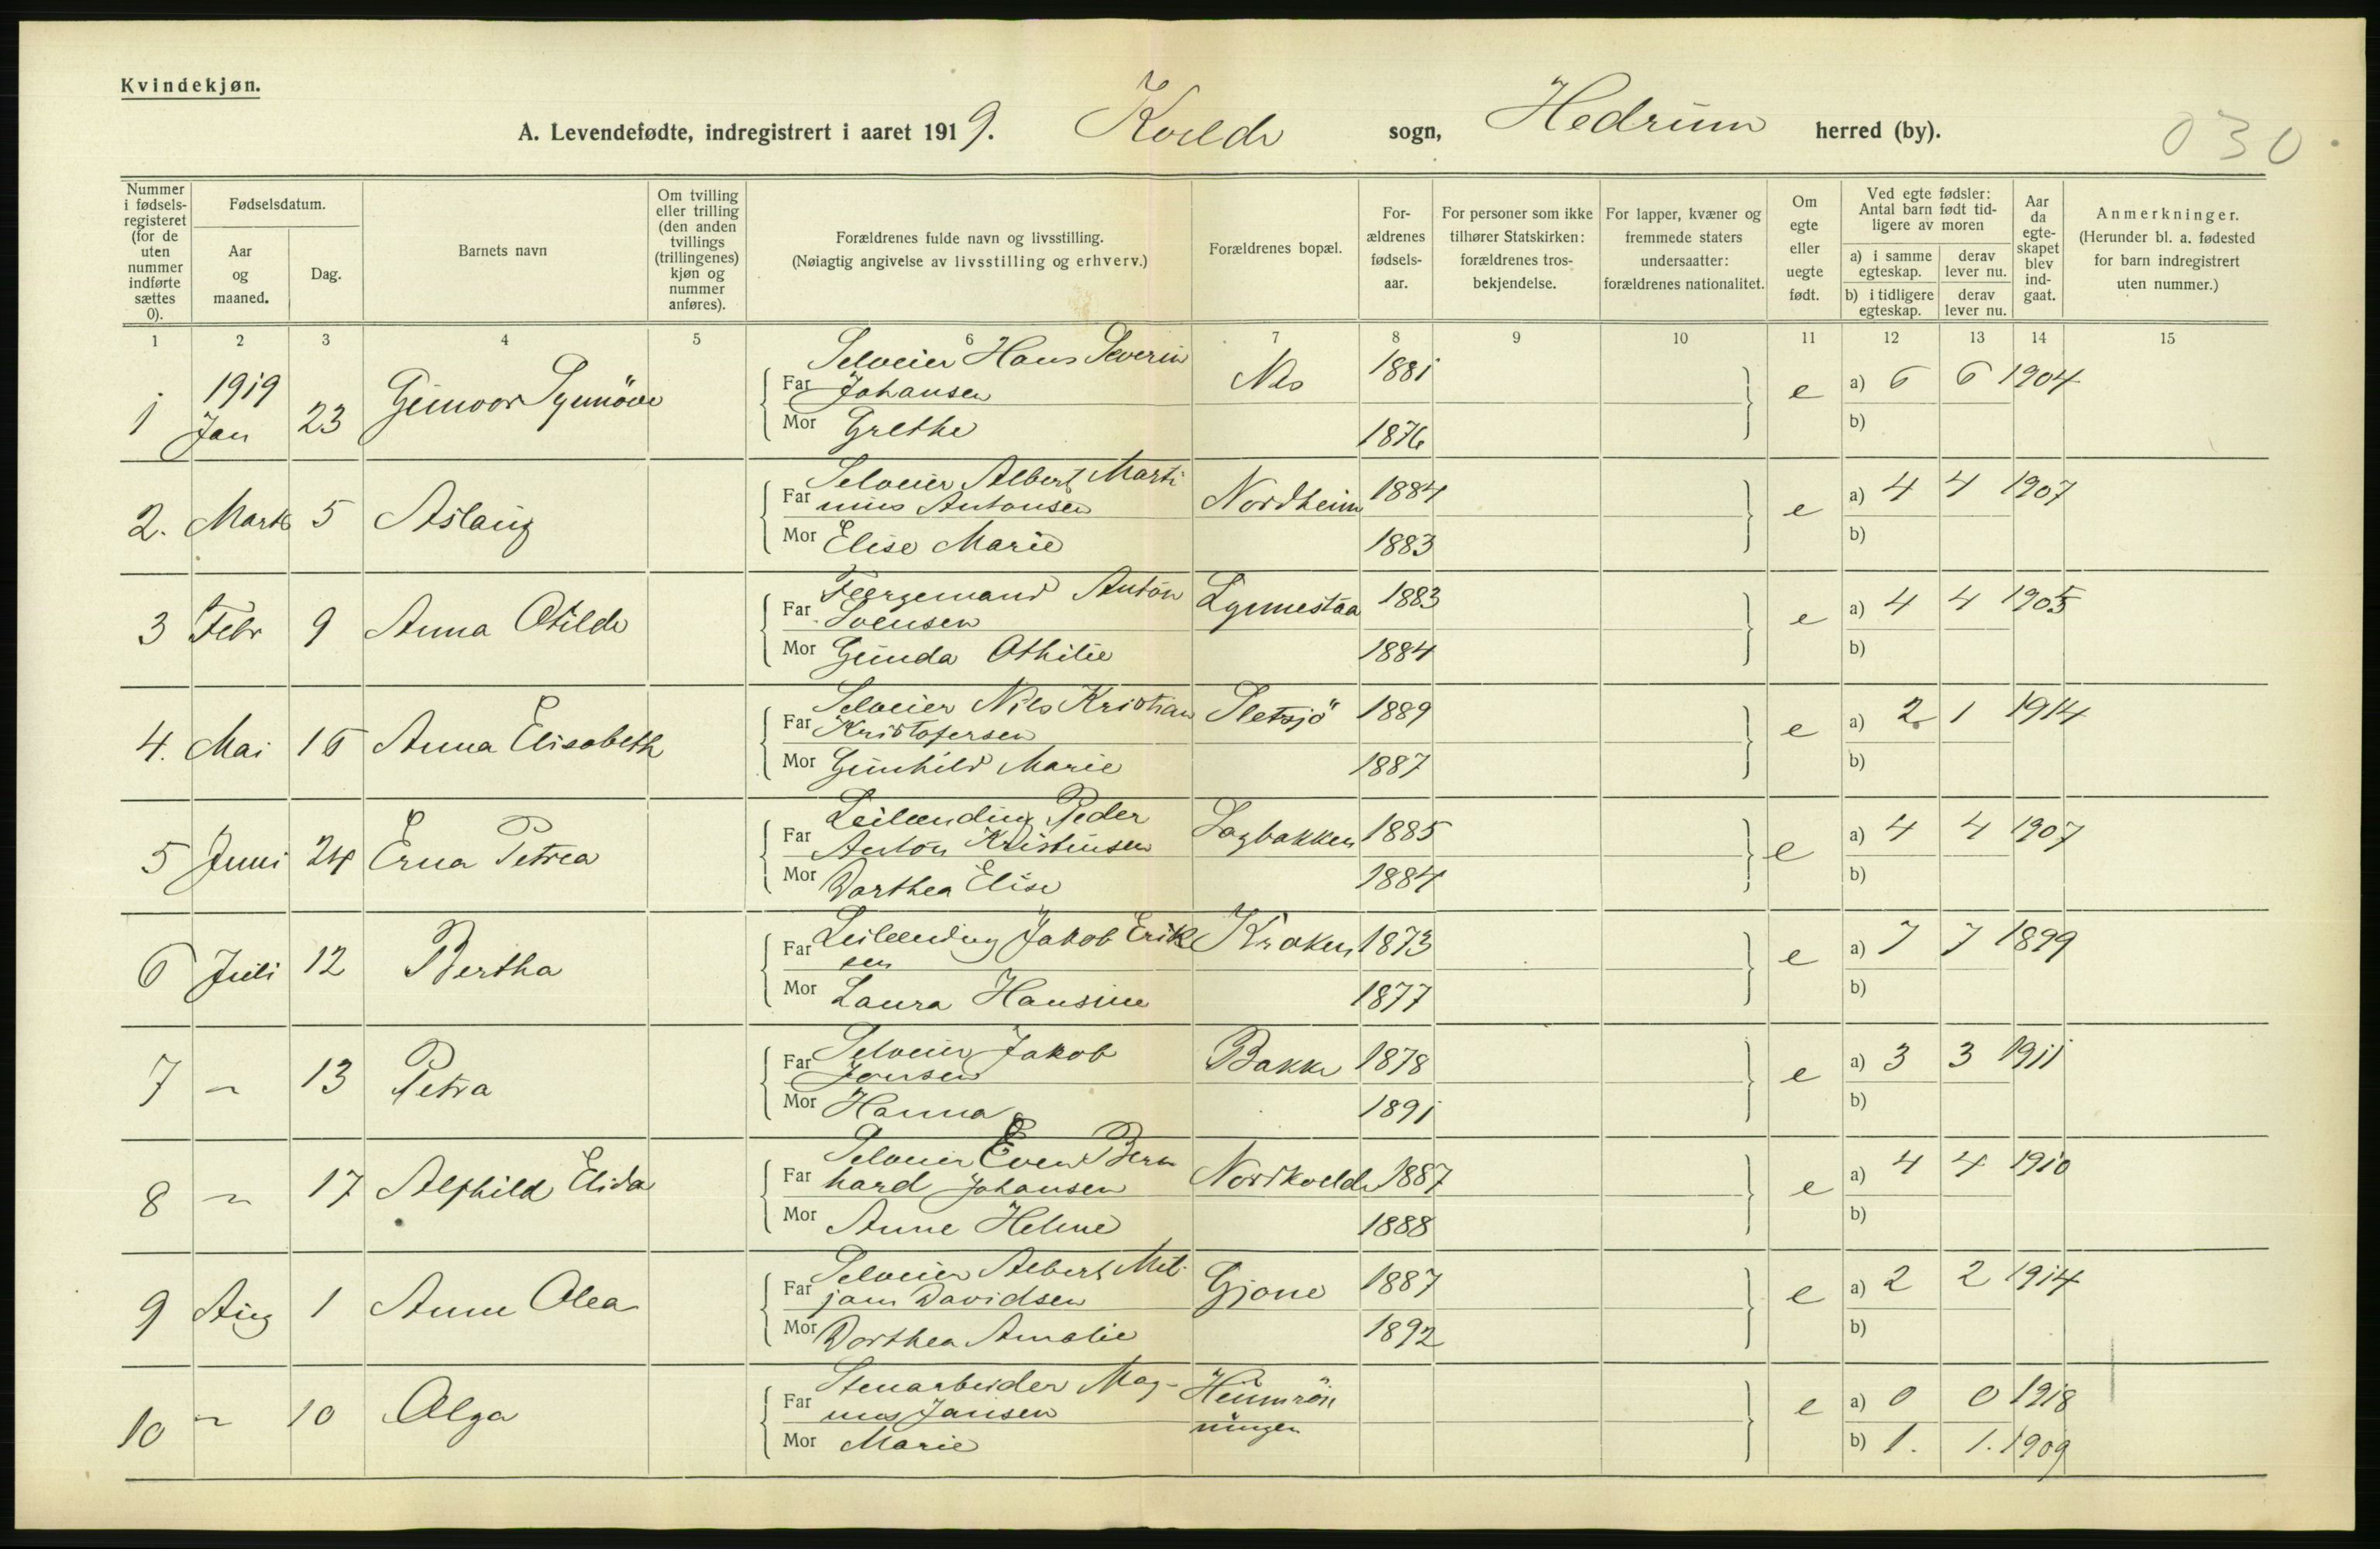 Kvindekjøn.
A. Levendefødte, indregistrert i aaret 1919. Kvelde sogn, Hedrum herred (by).
030
Nummer i fødsels-registeret (for de uten nummer indførte sættes 0).
Fødselsdatum.
Aar og maaned.
Dag.
Barnets navn
Om tvilling eller trilling (den anden tvillings (trillingenes) kjøn og nummer anføres).
Forældrenes fulde navn og livsstilling.
(Nøiagtig angivelse av livsstilling og erhverv.)
Forældrenes bopæl.
For-ældrenes fødsels-aar.
For personer som ikke tilhører Statskirken: forældrenes tros-bekjendelse.
For lapper, kvæner og fremmede staters undersaatter: forældrenes nationalitet.
Om egte eller uegte født.
Ved egte fødsler: Antal barn født tid-ligere av moren
a) i samme egteskap.
derav lever nu.
b) i tidligere egteskap.
derav lever nu.
Aar da egte-skapet blev ind-gaat.
Anmerkninger.
(Herunder bl. a. fødested for barn indregistrert uten nummer.)
1 2 3 4 5 6 7 8 9 10 11 12 13 14 15
1 1919 Jan 23 Gunvor Synnöve
Far Selveier Hans Severin
Johansen Nes 1881 e a) 6 6 1904
Mor Grethe 1876 b)
2. Marts 5 Aslaug
Far Selveier Albert Marti-
nius Antonsen Nordheim 1884 e a) 4 4 1907
Mor Elise Marie 1883 b)
3 Febr 9 Anna Otilde
Far Færgemand Anton
Svensen Lynnestaa 1883 e a) 4 4 1905
Mor Gunda Othilie 1884 b)
4. Mai 16 Anna Elisabeth
Far Selveier Nils Kristian
Kristofersen Sletsjö 1889 e a) 2 1 1914
Mor Gunhild Marie 1887 b)
5 Juni 24 Erna Petrea
Far Leilænding Peder
Anton Kristinsen Sagbakken 1885 e a) 4 4 1907
Mor Dorthea Elise 1884 b)
6 Juli 12 Bertha
Far Leilænding Jakob Erik
sen Kraken 1873 e a) 7 7 1899
Mor Laura Hansine 1877 b)
7 " 13 Petra
Far Selveier Jakob
Jonsen Bakke 1878 e a) 3 3 1911
Mor Hanna 1891 b)
8 " 17 Alfhild Elida
Far Selveier Even Bern
hard Johansen Nordkvelde 1887 e a) 4 4 1910
Mor Anne Helene 1888 b)
9 Aug 1 Anne Olea
Far Selveier Albert Mil-
jam Davidsen Gjone 1887 e a) 2 2 1914
Mor Dorthea Amalie 1892 b)
10 " 10 Olga
Far Stenarbeider Mag-
nus Jansen e a) 0 0 1918
Mor Marie b) 1. 1. 1909